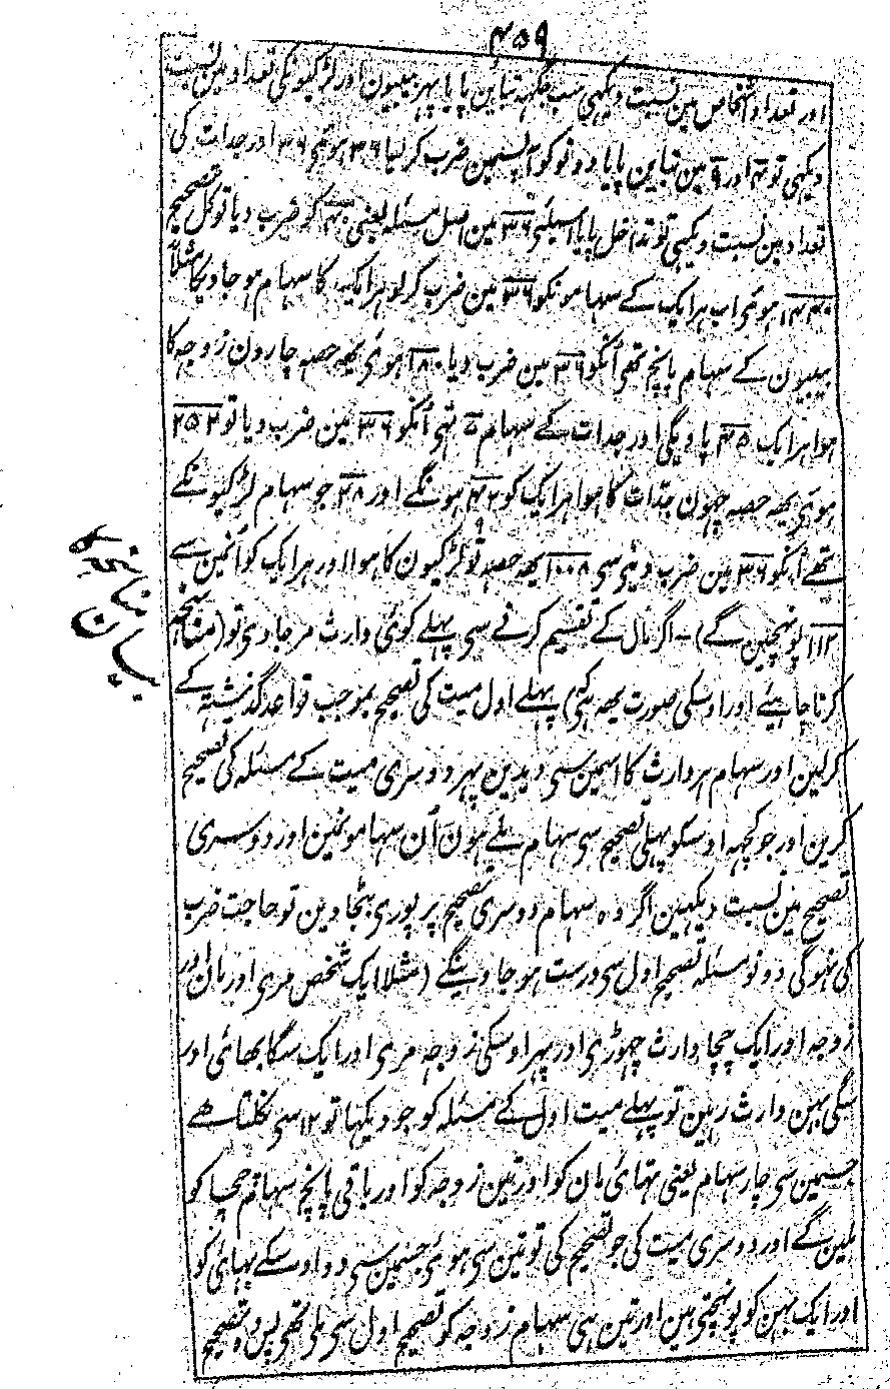 ۴۵۹
اور تعداد اشخاص مین نسبت دیکھی سب جگہہ تباین پایا پہر بیبیون اور لڑکیونکی تعداد مین نسبت
دیکہی تو ۴ اور ۹ مین تباین پایا دونوکو آپسمین ضرب کر لیا ۳۶ ہوئی ۳۶ اور جدات کی
تعداد مین نسبت دیکہی تو تداخل پایا اسلئی ۳۶ مین اصل مسئلہ یعنی ۴۰ کو ضرب دیا تو کل تصحیح
۱۴۴۰ ہوئی اب ہر ایک کے سہامونکو ۳۶ مین ضرب کر لو ہر ایک کا سہام ہو جاویگا مثلاً
بیبیون کے سہام پانچ تہی اُنکو ۳۶ مین ضرب دیا ۱۸۰ ہوئی یہہ حصہ چارون زوجہ کا
ہوا ہر ایک ۴۵ پاویگی اور جدات کے سہام ۷ تہی اُنکو ۳۶ مین ضرب دیا تو ۲۵۲
ہوئی یہہ حصہ چہون جدّات کا ہوا ہر ایک کو ۴۲ ہونگے اور ۲۸ جو سہام لڑکیونکے
تھے اُنکو ۳۶ مین ضرب دینی سی ۱۰۰۸ یہہ حصہ نو لڑکیون کا ہوا اور ہر ایک کو اُنمین سے
۱۱۲ پونہچین گے) ۔ اگر مال کے تقسیم کرنے سی پہلے کوئی وارث مر جاوی تو (مناسخہ
کرنا چاہیئے اور اوسکی صورت یہہ ہی کہ) پہلے اول میت کی تصحیح بموجب قواعد گذشتہ کے
کرلین اور سہام ہر وارث کا اسمین سی دیدین پہر دوسری میت کے مسئلہ کی تصحیح
کرین اور جو کچہہ اوسکو پہلی تصحیح سی سہام ملے ہون اُن سہامونمین اور دوسری
تصحیح مین نسبت دیکہین اگر وہ سہام دوسری تصحیح پر پوری بٹجاوین تو حاجت ضرب
کی نہوگی دونو مسئلہ تصحیح اول سی درست ہو جاوینگے (مثلا ایک شخص مری اور مان اور
زوجہ اور ایک چچا وارث چہوڑی اور پہر اوسکی زوجہ مری اور ایک سگا بھائی اور
سگی بہن وارث رہین تو پہلے میت اول کے مسئلہ کو جو دیکہا تو ۱۲ سی نکلتا ہے
جسمین سی چار سہام یعنی تہائی مان کو اور تین زوجہ کو اور باقی پانچ سہام چچا کو
ملین گے اور دوسری میت کی جو تصحیح کی تو تین سی ہوئی جسمین سی دو اوسکے بہائی کو
اور ایک بہن کو پونہچتی ہین اور تین ہی سہام زوجہ کو تصحیح اول سی ملی تھی پس وہ تصحیح
بیان مناسخہ کا